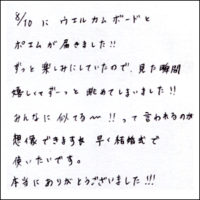 8/10 に ウエルカムボードと
ポエムが届きました!!
ずっと楽しみにしていたので、見た瞬間
嬉しくてずーっと眺めてしまいました!!
みんなに似てる〜!!って言われるのが
想像できます 早く結婚式で
使いたいです。
本当にありがとうございました!!!